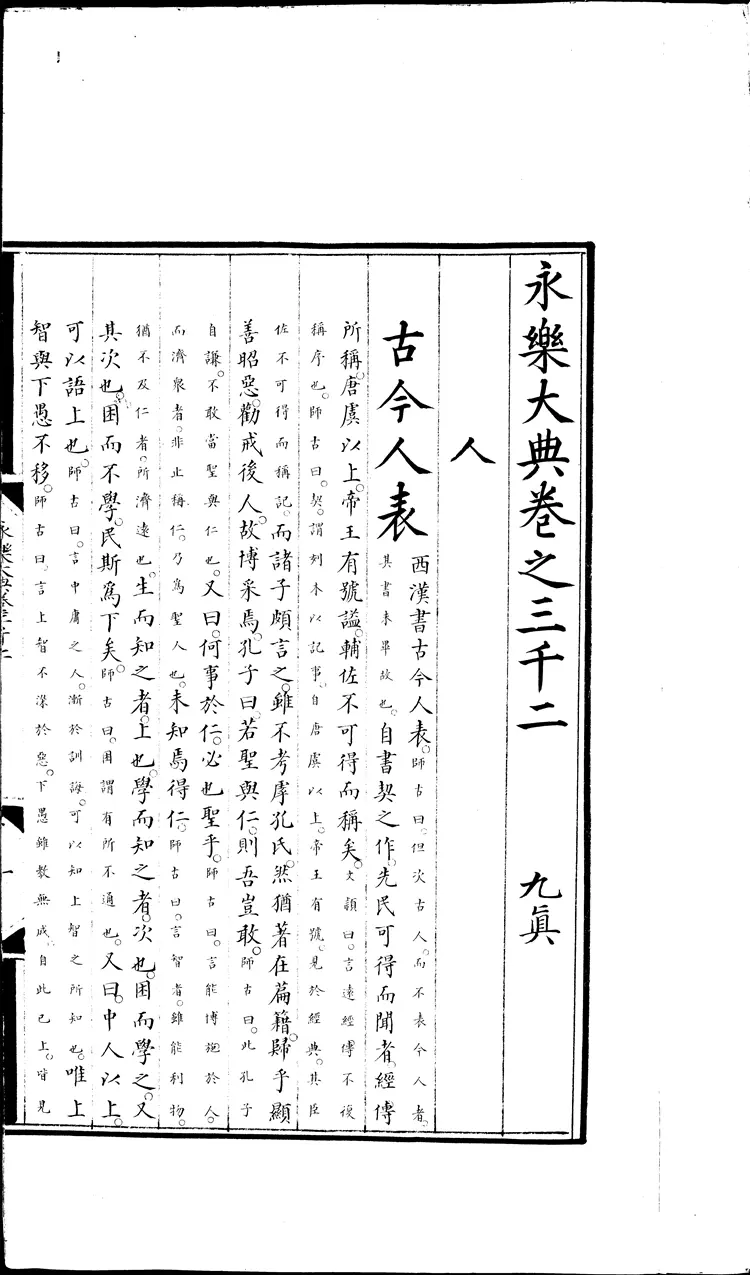 永樂大典卷之三千二 九真
人
古今人表 西漢書古今人表。師古曰。但次古人。而不表今人者。
其書未畢故也。自書契之作。先民可得而聞者。經傳
所稱。唐虞以上。帝王有號謚。輔佐不可得而稱矣。文頴曰。言遠經傳不復
稱序也。師古曰。契。謂刻木以記事。自唐虞以上。帝王有號。見於經典。其臣
佐不可得而稱記。而諸子頗言之。雖不考虖孔氏。然猶著在萹籍。歸乎顯
善昭惡。勸戒後人。故博采焉。孔子曰。若聖與仁。則吾豈敢。師古曰。此孔子
自謙。不敢當聖與仁也。又曰。何事於仁。必也聖乎。師古曰。言能博施於人。
而濟衆者。非止稱仁。乃爲聖人也。未知焉得仁。師古曰。言智者。雖能利物。
猶不及仁者。所濟遠也。生而知之者。上也。學而知之者。次也。困而學之。又
其次也。困而不學。民斯爲下矣。師古曰。困謂有所不通也。又曰。中人以上。
可以語上也。師古曰。言中庸之人。漸於訓誨。可以知上智之所知也。唯上
智與下愚不移。師古曰。言上智不染於惡。下愚雖教無成。自此已上。皆見